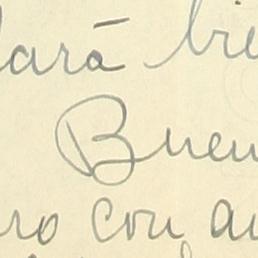 lará bie
Buen
ro con au